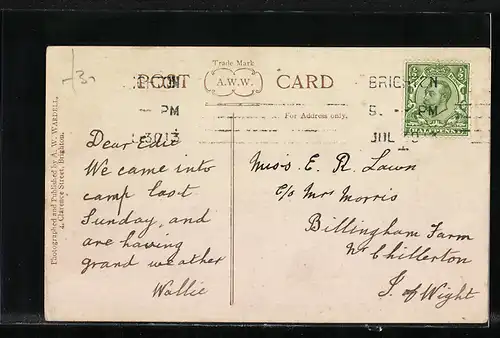 Trade Mark
POST A.W.W. CARD
For Address only.
PM
PM
JUL
HALFPENNY
Dear Edie
We came into
camp last
Sunday, and
are having
grand weather
Wallie
Miss E. R. Lawn
c/o Mrs Morris
Billingham Farm
Nr Chillerton
I. of Wight
Photographed and Published by A. W. WARDELL,
4, Clarence Street, Brighton.